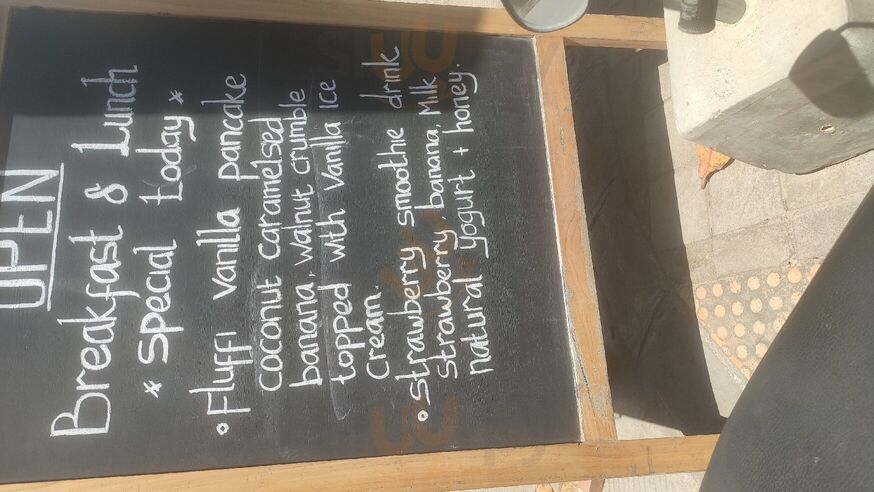 OPEN
Breakfast & Lunch
* special today *
• Fluffi vanilla pancake
coconut caramelsed
banana, walnut crumble
topped with vanilla ice
cream.
• strawberry smoothie drink
strawberry, banana, Milk
natural yogurt + honey.